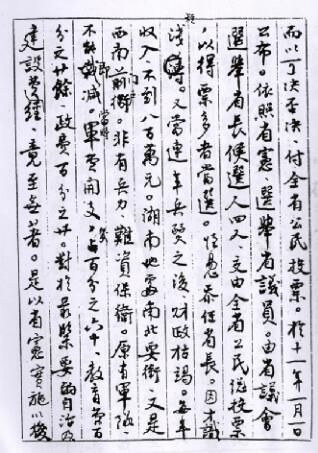 而以可決否決、付全省公民投票。於十一年一月一日
公布。依照省憲、選舉省議員。由省議會
選舉省長候選人四人、交由全省公民總投票
、以得票多者當選。恆惕忝任省長。因才識
淺薄。又當連年兵燹之後、財政枯竭。每年
收入、不到八百萬元。湖南地處南北要衝、又是
西南前衛。非有兵力、難資保衛。原有軍隊、
即不能裁減、當時軍費開支、占百分之六十、教育費百
分之廿餘、政費百分之廿。對於最緊要的自治及
建設費經、竟至無著。是以省憲實施以後